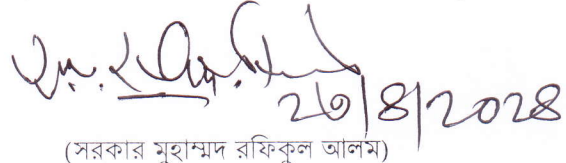 ২৩/৪/২০২৪
(সরকার মুহাম্মদ রফিকুল আলম)